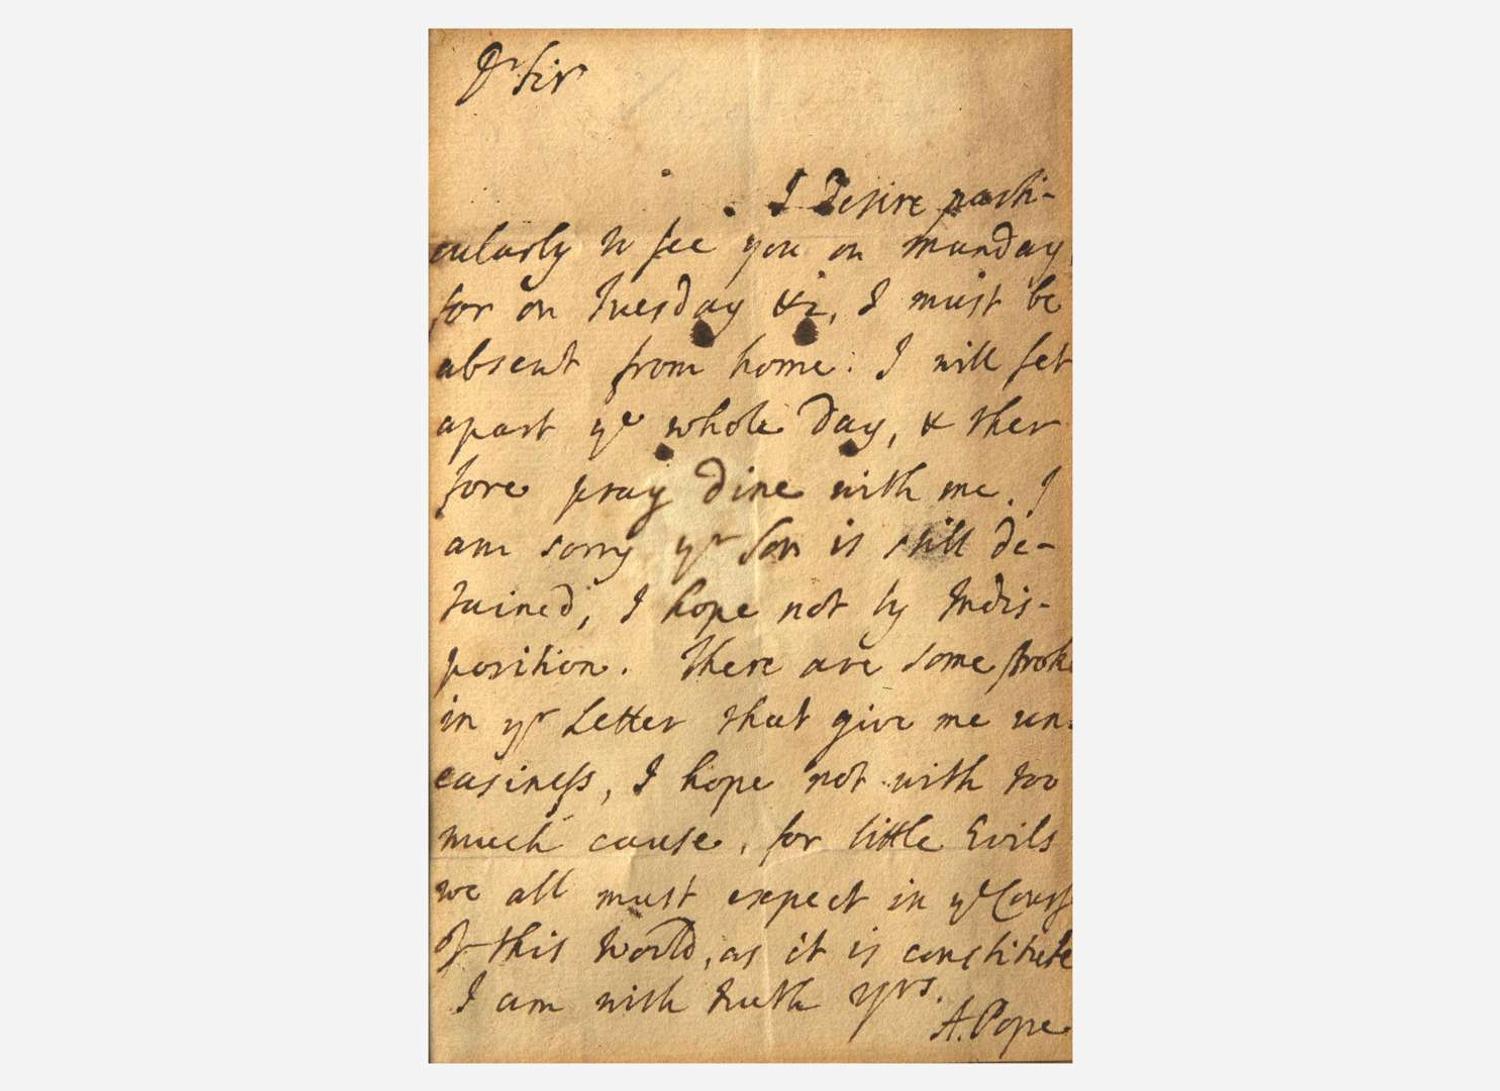 Dr Sir
I Desire parti-
cularly to see you on munday,
for on Tuesday &c, I must be
absent from home: I will set
apart ye whole Day, & ther
fore pray dine with me. I
am sorry yr Son is still de-
tained, I hope not by Indis-
position. There are some stroke
in yr Letter that give me un-
easiness, I hope not with too
much cause, for little Evils
we all must expect in ye Cours
of this World, as it is constitute
I am with truth yrs.
A. Pope